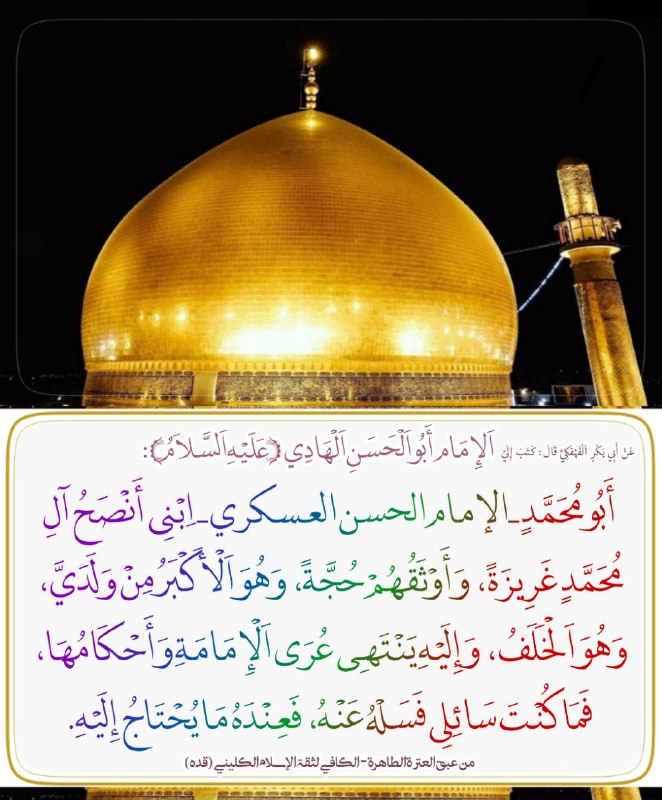 عَنْ أَبِي بَكْرٍ الْفَهْفَكِيِّ قَالَ: كَتَبَ إِلَيَّ اَلإِمَام أَبُو اَلْحَسَنِ اَلْهَادِي (عَلَيْهِ اَلسَّلاَمُ):
أَبُو مُحَمَّدٍ ـ الإمام الحسن العسكري ـ اِبْنِي أَنْصَحُ آلِ
مُحَمَّدٍ غَرِيزَةً، وَأَوْثَقُهُمْ حُجَّةً، وَهُوَ اَلْأَكْبَرُ مِنْ وَلَدَيَّ،
وَهُوَ اَلْخَلَفُ، وَإِلَيْهِ يَنْتَهِي عُرَى اَلْإِمَامَةِ وَأَحْكَامُهَا،
فَمَا كُنْتَ سَائِلِي فَسَلْهُ عَنْهُ، فَعِنْدَهُ مَا يُحْتَاجُ إِلَيْهِ.
من عبق العترة الطاهرة - الكافي لثقة الإسلام الكليني (قده)